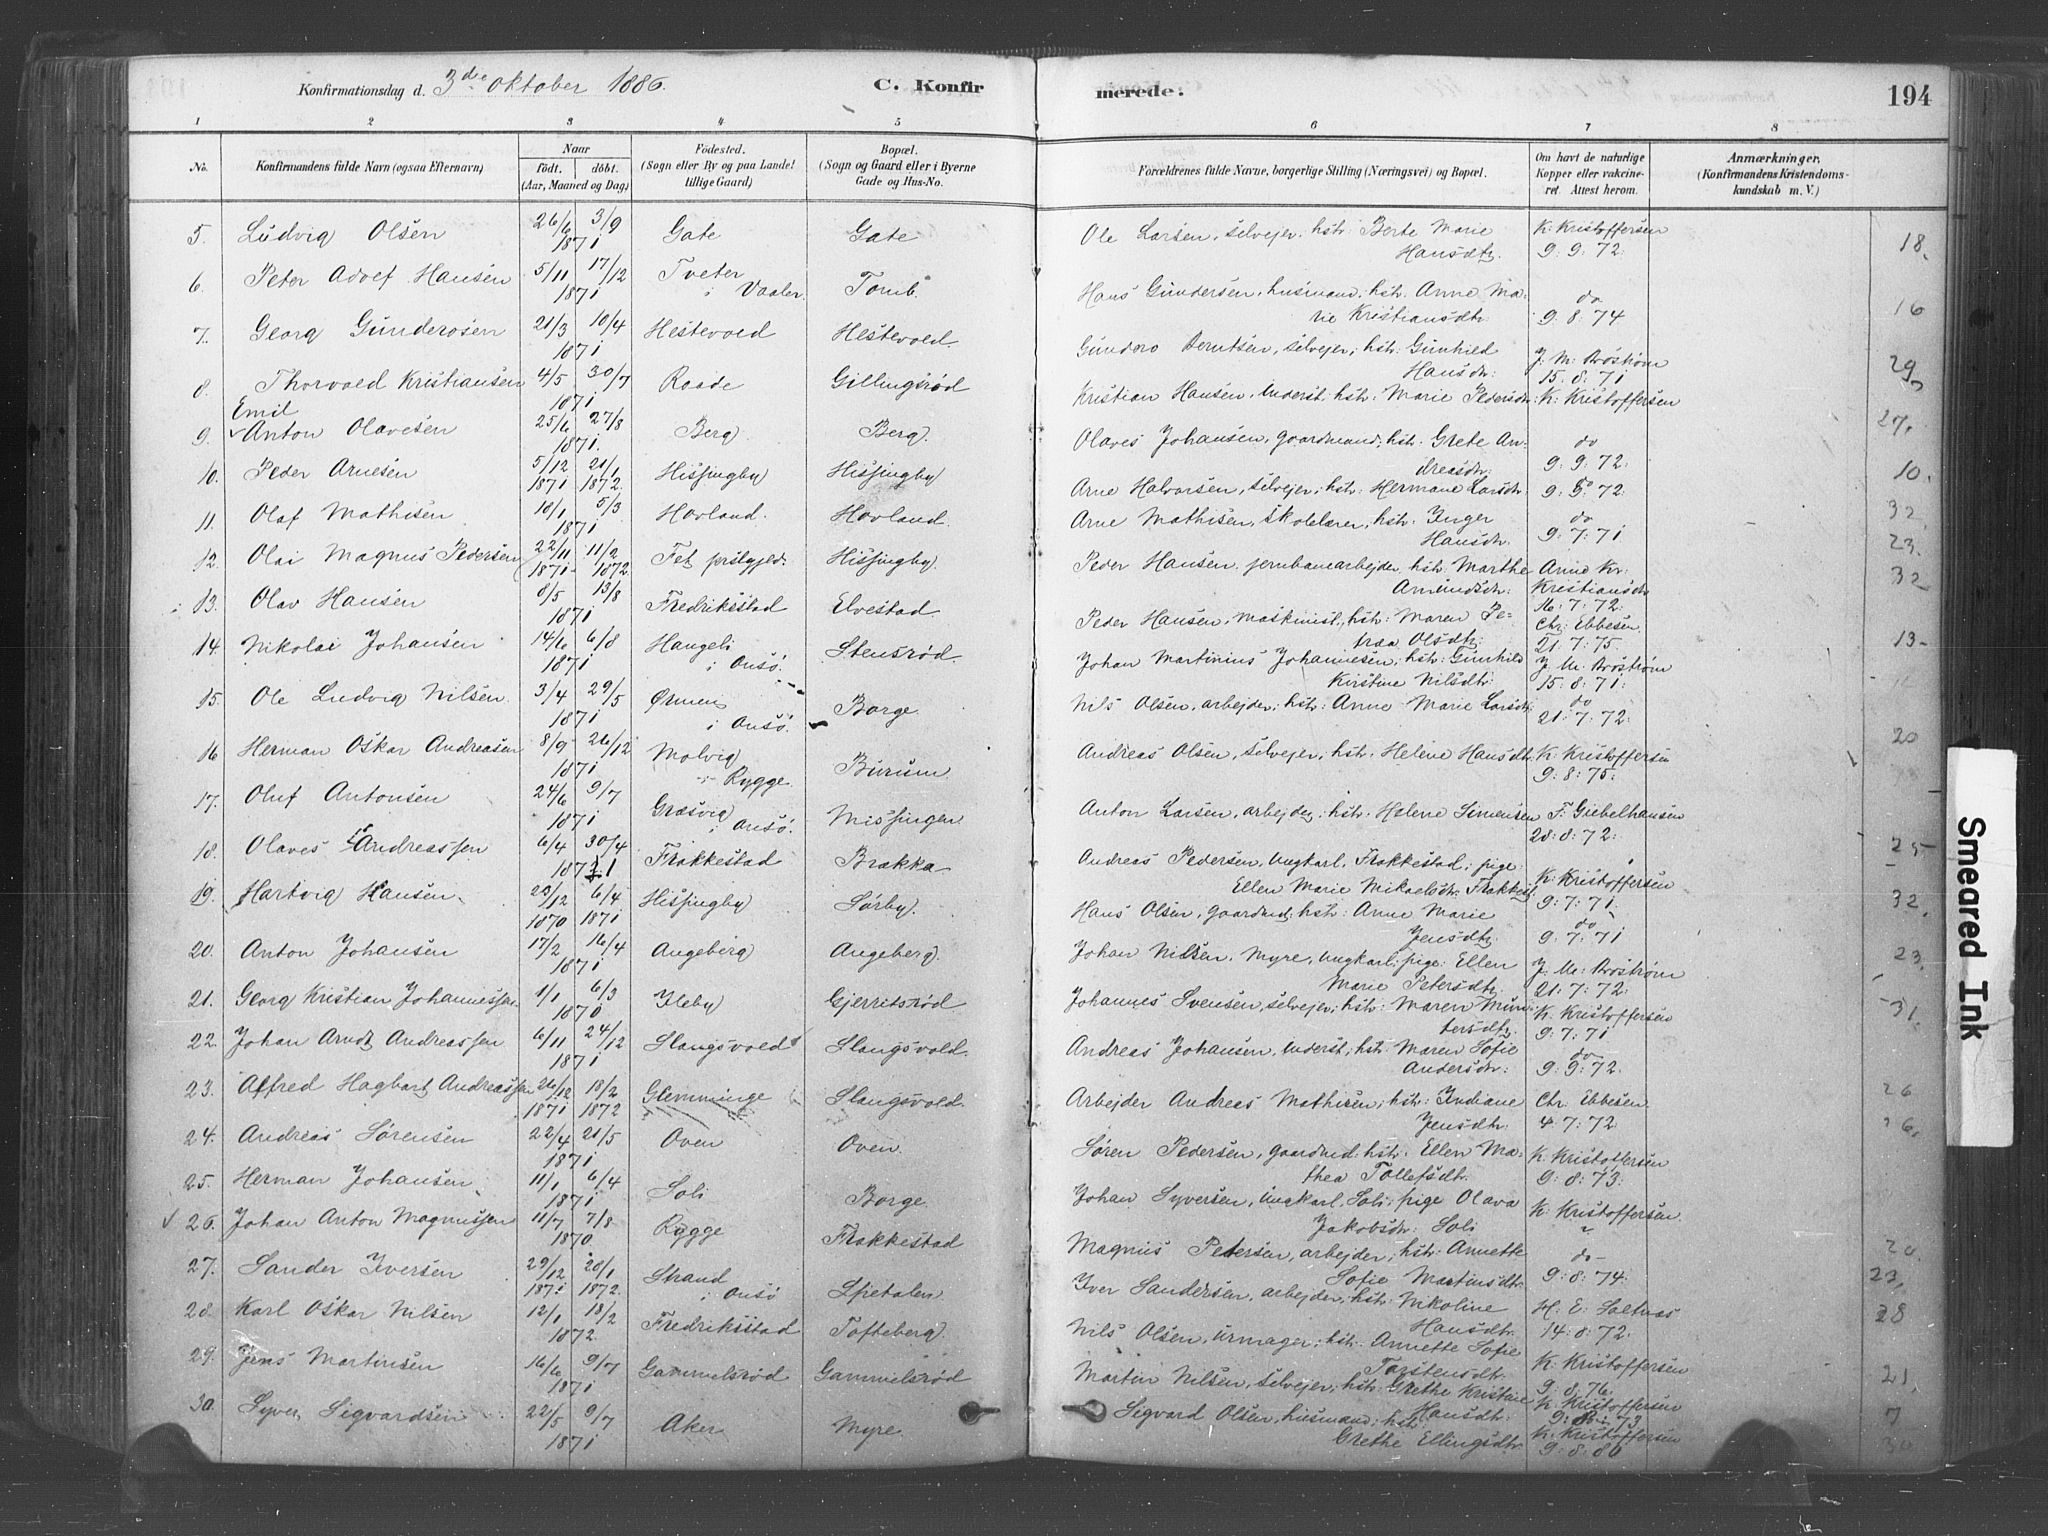 Konfirmationsdag d. 3die oktober 1886.
C. Konfirmerede.
194
1 2 3 4 5 6 7 8
No.
Konfirmandens fulde Navn (ogsaa Efternavn)
Naar
født. døbt.
(Aar, Maaned og Dag)
Fødested.
(Sogn eller By og paa Landet
tillige Gaard)
Bopæl.
(Sogn og Gaard eller i Byerne
Gade og Hus-No.
Forældrenes fulde Navne, borgerlige Stilling (Næringsvei) og Bopæl.
Om havt de naturlige
Kopper eller vakcine-
ret. Attest herom.
Anmærkninger.
(Konfirmandens Kristendoms-
kundskab m. V.)
5. Ludvig Olsen 26/6 3/9 1871 Gate Gate Ole Larsen, selvejer, hstr: Berte Marie Hansdtr. K. Kristoffersen 9:9:72. 18.
6. Peter Adolf Hansen 5/11 17/12 1871 Tveter i Vaaler Tomb. Hans Gundersen, husmand, hstr. Anne Marie Kristiansdtr. do 9:8:74 16
7. Georg Gundersen 21/3 10/4 1871 Hestevold Hestevold. Berntsen, selvejer; hstr: Gunhild Hansdtr: J. M. Brostrøm 15:8:71 29
8. Thorvald Kristiansen 4/5 30/7 1871 Raade Gillingsrød Kristian Hansen, inderst; hstr: Marie Pedersdtr: K. Kristoffersen 27.
9. Emil Anton Olavesen 25/6 27/8 1871. Berg Berg. Olaves Johansen, gaardmand; hstr: Grete Andreasdtr: do 9:9:72.
10. Peder Arnesen 5/12 1871 21/1 1872. Hissingby Hissingby Arne Halvorsen, selvejer; hstr: Hermane Larsdtr. 9:9:72 10.
11. Olaf Mathisen 10/1 5/3 1871 Hovland. Hovland. Arne Mathisen, skolelærer, hstr: Inger Hansdtr. do 9:7:71 32
12. Olai Magnus Pedersen 22/11 1871 11/2 1872. Fet prstgjeld. Hissingby. Peder Hansen, jernbanearbejder, hstr: Marthe Amundsdtr: Anne Kr. Kristiansdtr 16:7:72. 23.
13. Olav Hansen 8/5 13/8 1871 Fredrikstad Elvestad Peder Hansen, maskinist, hstr: Maren Petraa Olsdtr: Chr: Ebbesen. 21:7:75. 32
14. Nikolai Johansen 14/6 6/8 1871 Haugeli i Onsø. Stensrød. Johan Martinius Johannesen; hstr: Gunhild Kirstine Nilsdtr: J. M. Brostrøm 15:8:71: 13-
15. Ole Ludvig Nilsen 3/4 29/5 1871 Ørmen i Onsø. Borge Nils Olsen, arbejder; hstr: Anne Marie Larsdtr. do 21:7:72:
16 Herman Oskar Andreasen 8/9 26/12 1871 Molvig i Rygge. Burum Andreas Olsen, selvejer; hstr: Helene Hansdtr. K: Kristoffersen 9:8:75. 20
17. Oluf Antonsen 24/6 9/7 1871 Græsvig i Onsø. Missingen Anton Larsen, arbejder; hstr: Helene Simensen F. Giebelhausen 28:8:72.
18. Olaves Andreassen 6/4 30/4 1871 Frakkestad Brakka Andreas Pedersen, ungkarl, Frakkestad; pige: Ellen Marie Mikaelsdtr: Frakkest. K: Kristoffersen 9:7:71. 25
19. Hartvig Hansen. 23/12 1870 6/4 1871 Hissingby Sørby. Hans Olsen, gaardmd; hstr: Anne Marie Jensdtr. do 9:7:71 32.
20. Anton Johansen 17/2 16/4 1871. Augeberg Augeberg. Johan Nilsen, Myre, ungkarl; pige: Ellen Marie Petersdtr. J. M: Brostrøm 21:7:72: 23.
21. Georg Kristian Johannessen. 1/1 6/3 1870 Ileby Gjerritsrød Johannes Svensen, selvejer; hstr: Maren Muntersdtr. K. Kristoffersen 9:7:71 31.
22. Johan Arndt Andreassen 6/11 24/12 1871 Slangsvold Slangsvold. Andreas Johansen, inderst; hstr: Maren Sofie Andersdtr: do 9:9:72.
23. Alfred Hagbart Andreassen 26/12 1871 18/2 1872 Glemminge Slangsvold. Arbejder Andreas Mathisen; hstr: Indiane Jensdtr: Chr. Ebbesen. 4:7:72 26
24. Andreas Sørensen 22/4 21/5 1871 Oven Oven. Søren Pedersen, gaardmd. hstr: Ellen Mathea Tollefsdtr. K. Kristoffersen 9:8:73.
25. Herman Johansen. 11/1 6/4 1871 Soli Borge. Johan Syversen, ungkarl, Soli; pige Olava Jakobsdtr: Soli K: Kristoffersen.
26. Johan Anton Magnussen 11/7 7/8 1870 Rygge Frakkestad Magnus Petersen, arbejder; hstr: Annette Sofie Martinsdtr. do- 9:8:74. 20.
27. Sander Iversen 29/12 1871 28/1 1872. Strand i Onsø Spetalen. Iver Sandersen, arbejder, hstr: Nikoline Hansdtr. H: E: Saltnes 14:8:72. 23.
28. Karl Oskar Nilsen 12/1 18/2 1872. Fredrikstad Tofteberg. Nils Olsen, urmager; hstr. Annette Sofie Torstensdtr. K. Kristoffersen 9:8:76. 28
29. Jens Martinsen 16/6 9/7 1871 Gammelsrød Gammelsrød Martin Nilsen, selvejer; hstr: Grethe Kristine Hansdtr: K. Kristoffersen 9:8:73 21.
30. Syver Sigvardsen 22/5 9/7 1871 Aker Myre. Sigvard Olsen, husmand; hstr: Grethe Ellingsdtr. K: Kristoffersen 9:8:80 7
Smeared Ink